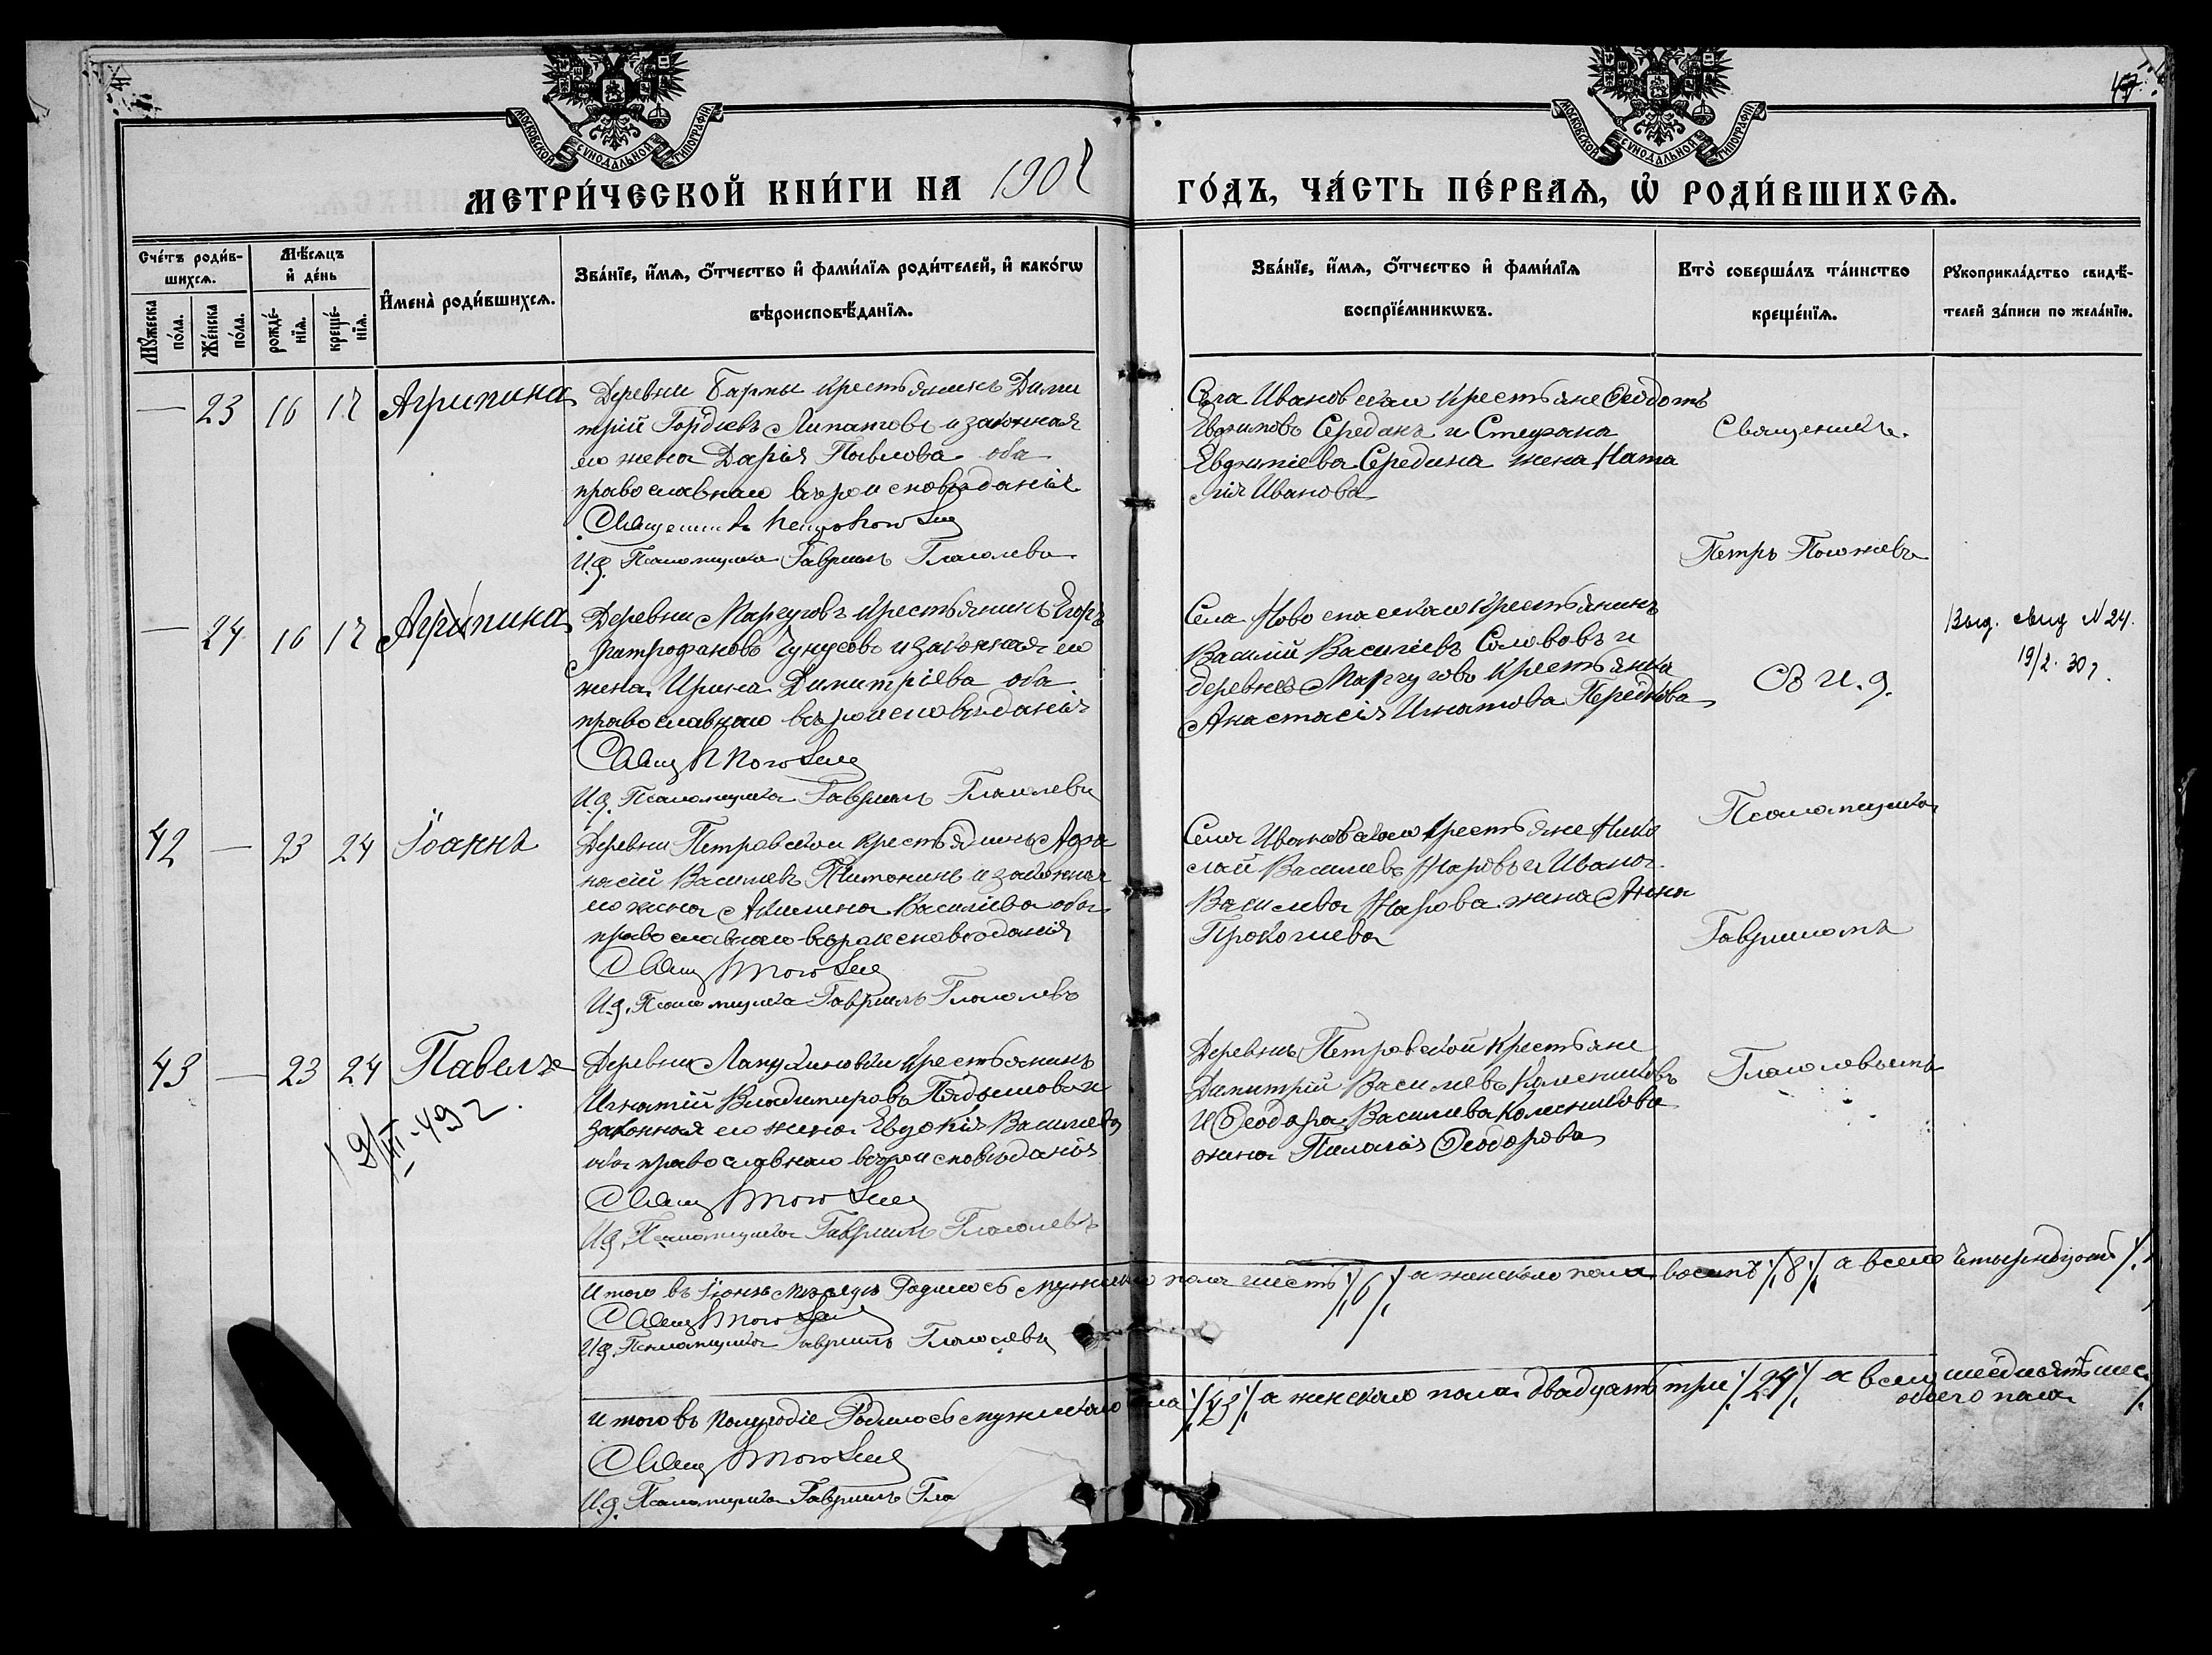 47
МОСКОВСКОЙ СѴНОДАЛЬНОЙ ТИПОГРАФІИ
МОСКОВСКОЙ СѴНОДАЛЬНОЙ ТИПОГРАФІИ
МЕТРИ́ЧЕСКОЙ КНИ́ГИ НА 190
ГО́ДЪ, ЧА́СТЬ ПЕ́РВАѦ, Ѡ҆ РОДИ́ВШИХСѦ.
Сче́тъ роди́в-
шихсѧ.
Мꙋ́жеска по́ла.
Же́нска по́ла.
Мѣ́сѧцъ
и҆ де́нь
рожде́-нїѧ.
креще́-нїѧ.
И҆мена̀ роди́вшихсѧ.
Зва́нїе, и҆́мѧ, ѻ҆́тчество и҆ фами́лїѧ роди́телей, и҆ како́гѡ
вѣроисповѣ́данїѧ.
Зва́нїе, и҆́мѧ, ѻ҆́тчество и҆ фами́лїѧ
воспрїе́мникѡвъ.
Кто̀ соверша́лъ та́инство
креще́нїѧ.
Рꙋкоприкла́дство свидѣ́-
телей за́писи по жела́нїю.
— 23 16 17 Агрипина
Деревни Бармы крестьянинъ Дими
трій Гордіевъ Липатовъ и законная
его жена Дарія Павлова оба
православнаго вѣроисповѣданія
Священникъ
И.д. Псаломщика Гавріилъ Глаголевъ
Села Ивановскаго крестьяне Ѳеодотъ
Евфимовъ Серединъ и Стефана
Евфиміева Середина жена Ната
лія Иванова
Священникъ
Петръ
— 24 16 17 Агрипина
Деревни Маргусовъ крестьянинъ Егоръ
Митрофановъ и законная его
жена Ирина Димитріева оба
православнаго вѣроисповѣданія
Свящ
И.д. Псаломщика Гавріилъ Глаголевъ
Села Новоспасскаго крестьянинъ
Василій Васильевъ Соловов и
деревни крестьянка
Анастасія Игнатова
Съ И.д.
Выд. свид N 24.
19/2. 30 г.
42 — 23 24 Іоаннъ
Деревни Петровской крестьянинъ Афа
насій Васильевъ и законная
его жена Акилина Васильева оба
православнаго вѣроисповѣданія
Свящ
И.д. Псаломщика Гавріилъ Глаголевъ
Села Ивановскаго крестьяне Нико
лай Васильевъ и Ивана
Васильева жена Анна
Прокопиева
Псаломщика
Гавріиломъ
43 — 23 24 Павелъ
19/III-49 г.
Деревни крестьянинъ
Игнатій Владимировъ и
законная его жена Евдокія Васильева
оба православнаго вѣроисповѣданія
Свящ
И.д. Псаломщика Гавріилъ Глаголевъ
Деревни Петровской крестьяне
Димитрій Васильевъ Колесниковъ
и Ѳеодора Васильева Колесникова
жена Пелагія Ѳеодорова
Глаголевымъ
Итого въ Іюнѣ мѣсяцѣ Родилось мужскаго пола шесть /6/ а женскаго пола восемь /8/ а всего четырнадцать /.
Свящ
И.д. Псаломщика Гавріилъ Глаголевъ
Итого въ полугодіе Родилось мужскаго пола /43/ а женскаго пола двадцать три /24/ а всего
обоего пола
Свящ
И.д. Псаломщика Гавріилъ Гла